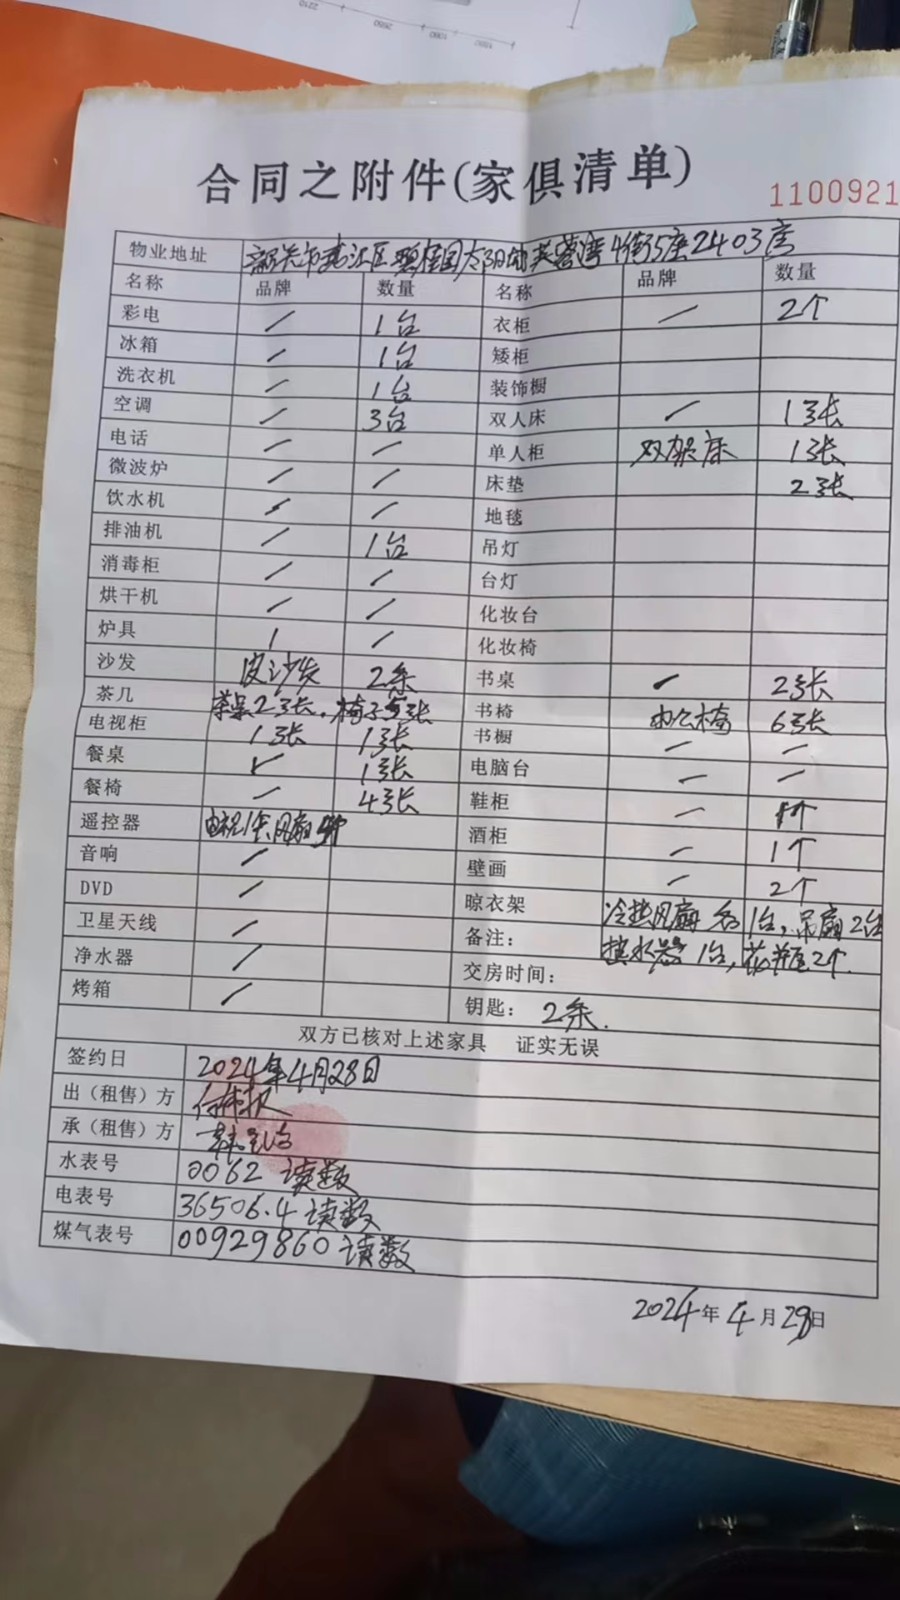 2210
2650
1080
1550
合同之附件(家俱清单)
1100921
物业地址 韶关市浈江区碧桂园太阳城芙蓉湾4街5座2403房
名称 品牌 数量 名称 品牌 数量
彩电 / 1台 衣柜 / 2个
冰箱 / 1台 矮柜
洗衣机 / 1台 装饰橱
空调 / 3台 双人床 / 1张
电话 / / 单人柜 双架床 1张
微波炉 / / 床垫 2张
饮水机 / / 地毯
排油机 / 1台 吊灯
消毒柜 / / 台灯
烘干机 / / 化妆台
炉具 / / 化妆椅
沙发 皮沙发 2条 书桌 / 2张
茶几 茶几2张,椅子5张 书椅 办公椅 6张
电视柜 1张 1张 书橱 / /
餐桌 / 1张 电脑台 / /
餐椅 / 4张 鞋柜 / 1个
遥控器 电视1个风扇 酒柜 / 1个
音响 / 壁画 / 2个
DVD / 晾衣架 冷热风扇各1台,吊扇2台
卫星天线 / 备注: 热水器1台,花瓶2个.
净水器 / 交房时间:
烤箱 / 钥匙: 2条.
双方已核对上述家具 证实无误
签约日 2024年4月28日
出（租售）方
承（租售）方
水表号 0062 读数
电表号 36506.4 读数
煤气表号 00929860 读数
2024年4月29日